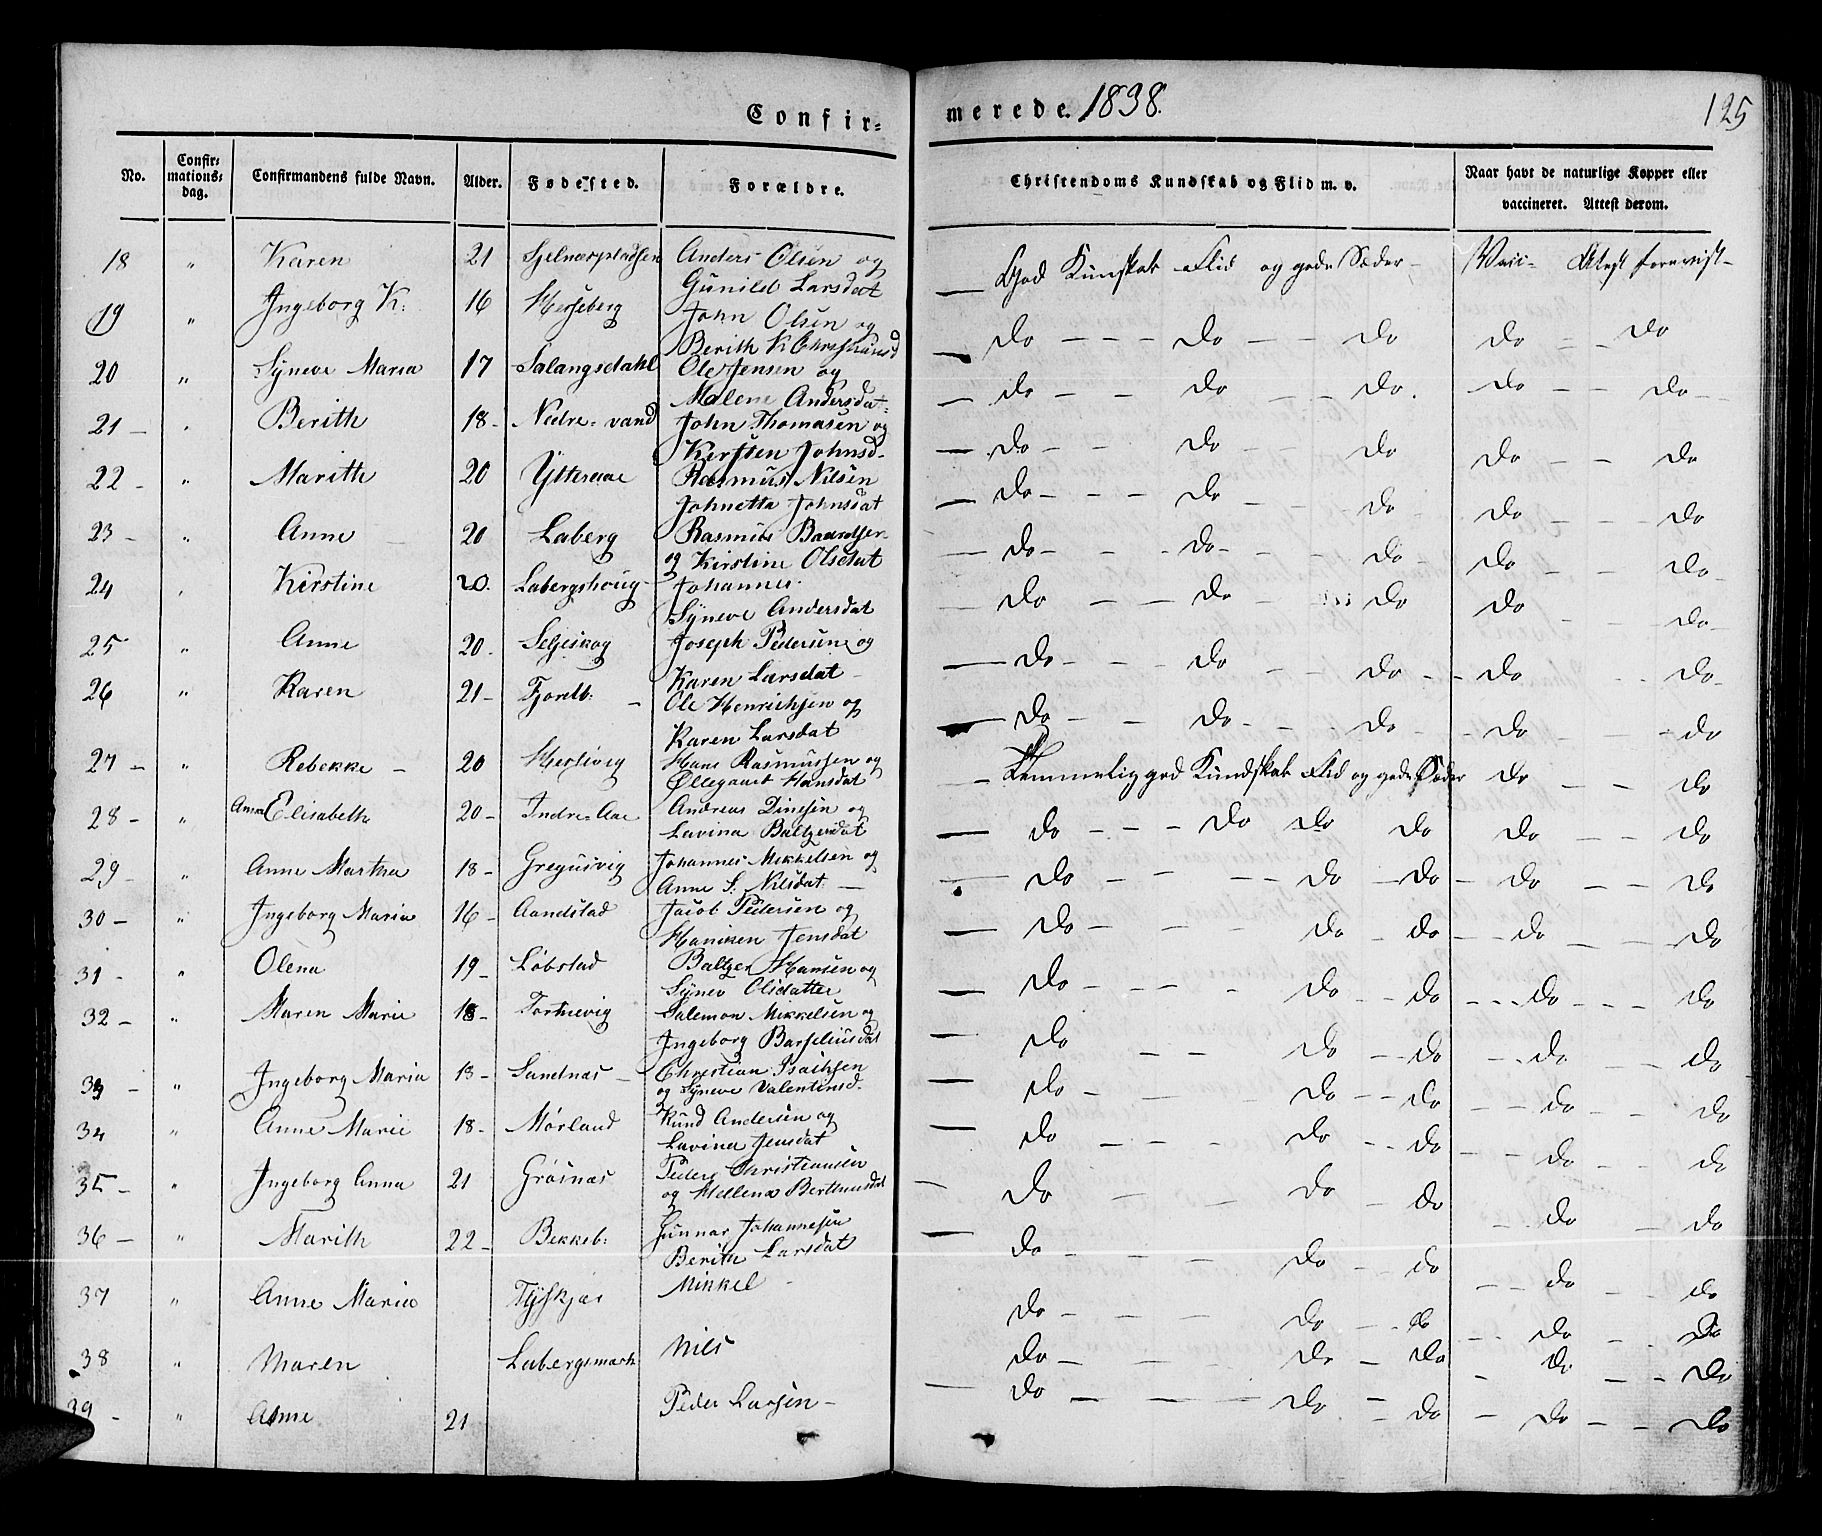 Confir-
merede. 1838.
125
No.
Confir-
mations-
dag.
Confirmandens fulde Navn.
Alder.
Fødested.
Forældre.
Christendoms Kundskab og Flid m. v.
Naar havt de naturlige Kopper eller
vaccineret. Attest derom.
18 " Karen 21 Anders Olsen og
Gunild Larsdat
God Kundskab Flid og gode Sæder - Vacc- Attest forevist -
19 " Ingeborg K: 16 Hesseberg John Olsen og
Berith K Christiansd
do - - - do - - do do - - do
20 " Syneve Maria 17 Salangsdahl Ole Jensen og
Malene Andersdat:
do - - do - - do. do - - do -
21 - " Berith 18 - Nedre-vand John Thomasen og
Kersten Johnsd-
do - - do - - do do - - do
22 - " Marith 20 Ytteraae Rasmus Nilsen
Johnetta Johnsdat
do - - - do - - do do - - do
23 - " Anne 20 Laberg Rasmus Baardsen
og Kirstine Olsdat
do - - - do - - - do do - - do -
24 " Kirstine 20. Labergshoug - Johannes.
Syneve Andersdat
do - - do - do do - - do -
25 " Anne 20. Seljeskog Joseph Pedersen og
Karen Larsdat -
do - - - do - - do - - do - - do -
26 " Karen 21 - Fjordb: - Ole Henrichsen og
Karen Larsdat
do - - do - - do - do - - do
27 - " Rebekke - 20 Hans Rasmussen og
Øllegaard Hansdat
- Temmelig god Kundskab Flid og gode Sæder do - - do
28 - " Anna Elisabeth 20 - Indre-Aae Andreas Dinesen og
Lavina Baltzersdat
do - - - do do do do - - do
29 - " Anne Martha 18 - Gregusvig Johannes Mikkelsen og
Anne S: Nilsdat -
do - - - - do - do - do - - do
30 - " Ingeborg Maria 16 - Aandstad Jacob Pedersen og
Haniken Jensdat
do - - - do - do - - do - - do
31 - " Olena 19 - Løbstad Baltzer Hansen og
Synev Olsdatter
do - - - do - - do - - - do - - - do
32 - " Maren Marie 18 - Salomon Mikkelsen og
Ingeborg Barseliusdat
do - - do - - do - - - do - - do
33 - " Ingeborg Maria 18 - Sandnas - Christian Isachsen
og Syneve Valentinsd.
do - - - do - - do - - do - - do
34 " Anne Marie 18 - Mørland Knud Andersen og
Lavina Jensdat
do - - - do - - do - - do - - do
35 - " Ingeborg Anna 21 Grøsnas Peder Christiansen
og Mellena Bertheusdat
do - - do - do - do - do
36 - " Marith 22 - Bekkeb: Gunnar Johannesen
Berith Larsdat
do - - do - do - - do - do
37 " Anne Maria Tyskjas Mikkel -
do - - - do - - do - - do - - do
38 " Maren Labergsmark Nils
do - - do - do - do - - do
39 - " Anne 21 Peder Larsen -
do - - - do - do - do - - do